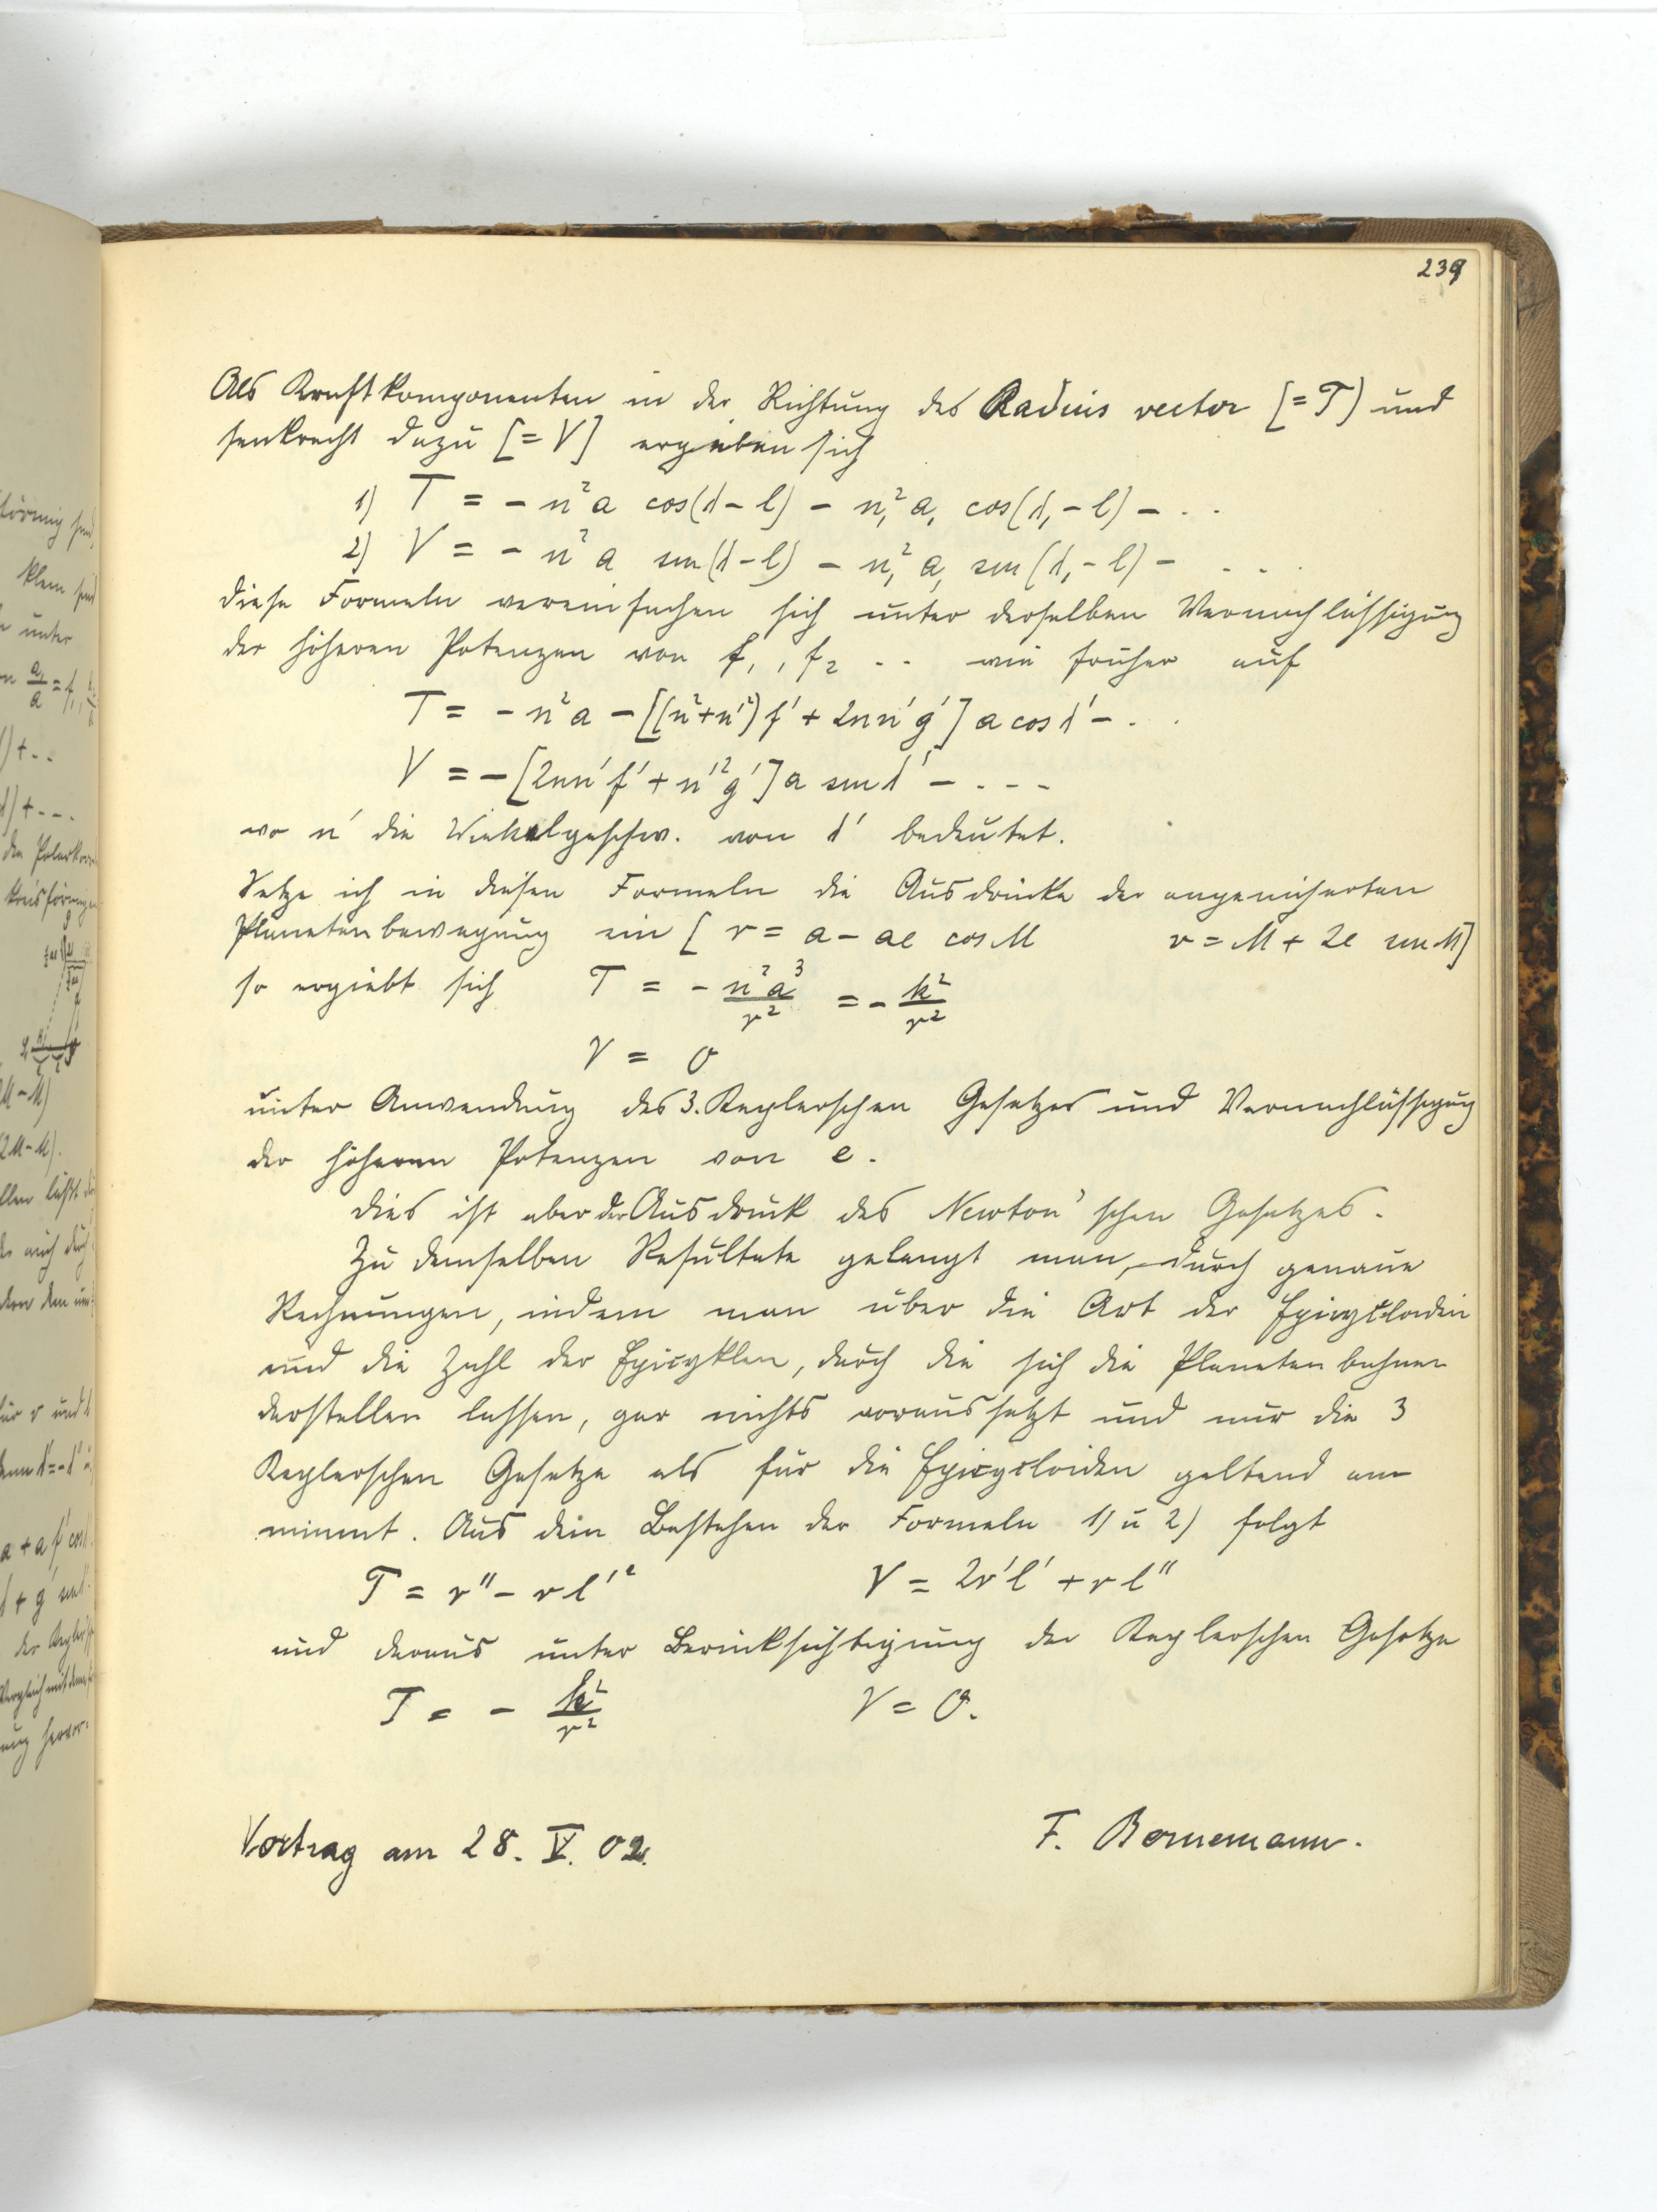 239
Als Kraftkomponenten in der Richtung des Radius vector [= T) und
senkrecht dazu [= V] ergeben sich
1) T = - n² a cos(λ - l) - n₁² a₁ cos(λ₁ - l) - . .
2) V = - n² a sin(λ - l) - n₁² a₁ sin(λ₁ - l) - . . .
diese Formeln vereinfachen sich unter derselben Vernachlässigung
der höheren Potenzen von f₁, f₂ . . wie früher auf
T = - n² a - [(n² + n'²) f' + 2nn'g'] a cos λ' - . .
V = - [2nn'f' + n'²g'] a sin λ' - . . .
wo n' die Winkelgeschw. von λ' bedeutet.
Setze ich in diesen Formeln die Ausdrücke der angenäherten
Planetenbewegung ein [ r = a - ae cos M v = M + 2e sin M]
so ergiebt sich T = - n² a³ / r² = - k² / r²
V = 0
unter Anwendung des 3. Keplerschen Gesetzes und Vernachlässigung
der höheren Potenzen von e.
Dies ist aber der Ausdruck des Newton'schen Gesetzes.
Zu demselben Resultate gelangt man, durch genaue
Rechnungen, indem man über die Art der Epicycloiden
und die Zahl der Epicyklen, durch die sich die Planetenbahnen
darstellen lassen, gar nichts voraussetzt und nur die 3
Keplerschen Gesetze als für die Epicycloiden geltend an
nimmt. Aus dem Bestehen der Formeln 1) u 2) folgt
T = r'' - r l'² V = 2r'l' + r l''
und daraus unter Berücksichtigung der Keplerschen Gesetze
T = - k² / r² V = 0.
Vortrag am 28. V. 02. F. Bornemann.